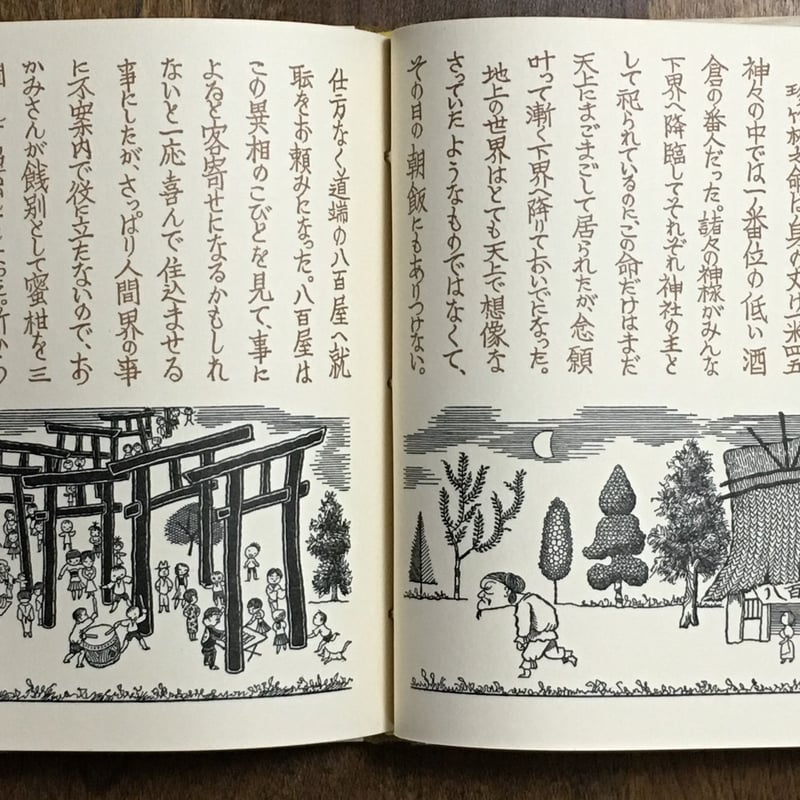 太命は身の丈け一米四五
神々の中では一番位の低い酒
倉の番人だった。諸々の神様がみんな
下界へ降臨してそれぞれ神社の主と
して祀られているのに、この命だけはまだ
天上にまごまごして居られたが念願
叶って漸く下界へ降りておいでになった。
地上の世界はとても天上で想像な
さっていたようなものではなくて、
その日の朝飯にもありつけない。
八百
仕方なく道端の八百屋へ就
耺をお頼みになった。八百屋は
この異相のこびとを見て、事に
よると客寄せになるかもしれ
ないと一応喜んで住込ませる
事にしたが、さっぱり人間界の事
に不案内で役に立たないので、お
かみさんが餞別として蜜柑を三